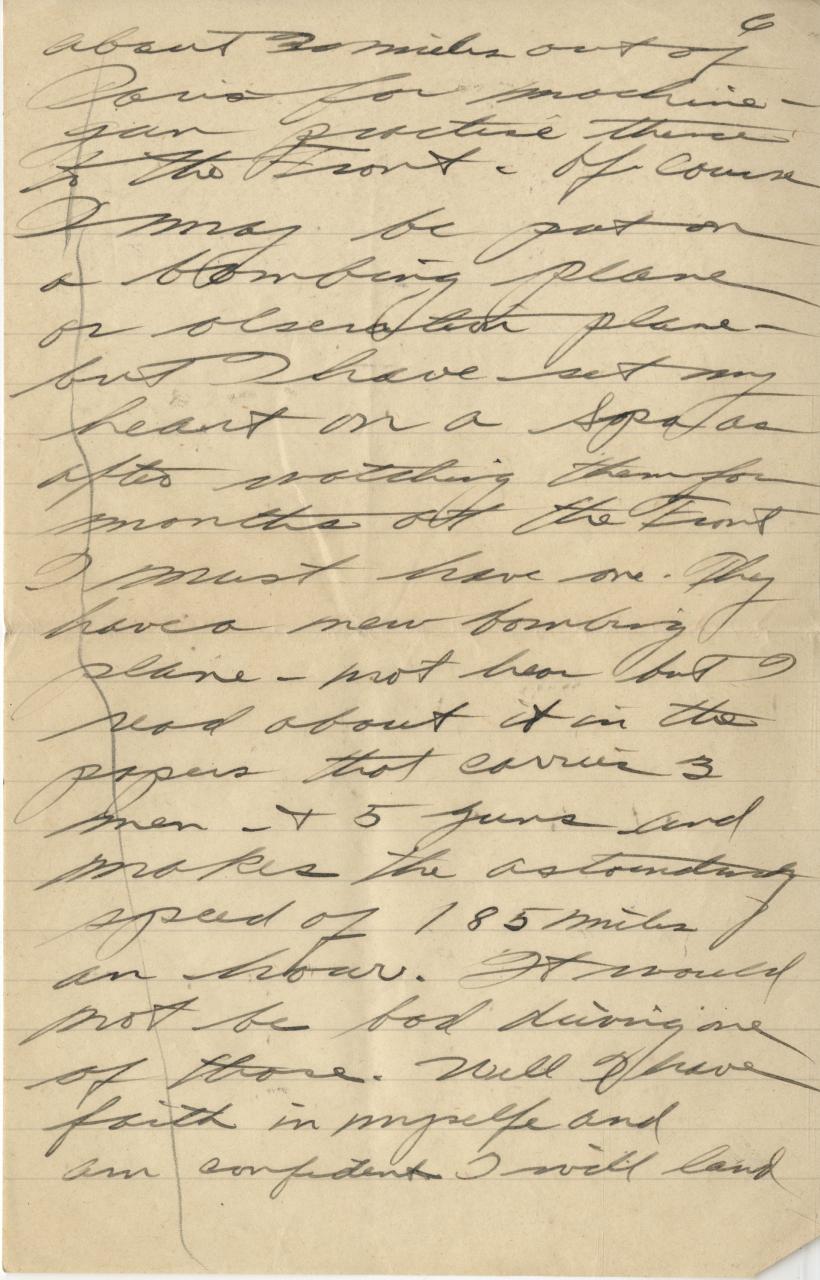 6
about 30 miles out of
Paris for machine-
gun practise thence
to the Front. Of course
I may be put on
a bombing plane
or observation plane-
but I have set my
heart on a Spad as
after watching them for
months at the Front
I must have one. They
have a new bombing
plane - not here but I
read about it in the
papers that carries 3
men - + 5 guns and
makes the astounding
speed of 185 miles
an hour. It would
not be bad driving one
of those. Well I have
faith in myself and
am confident I will land